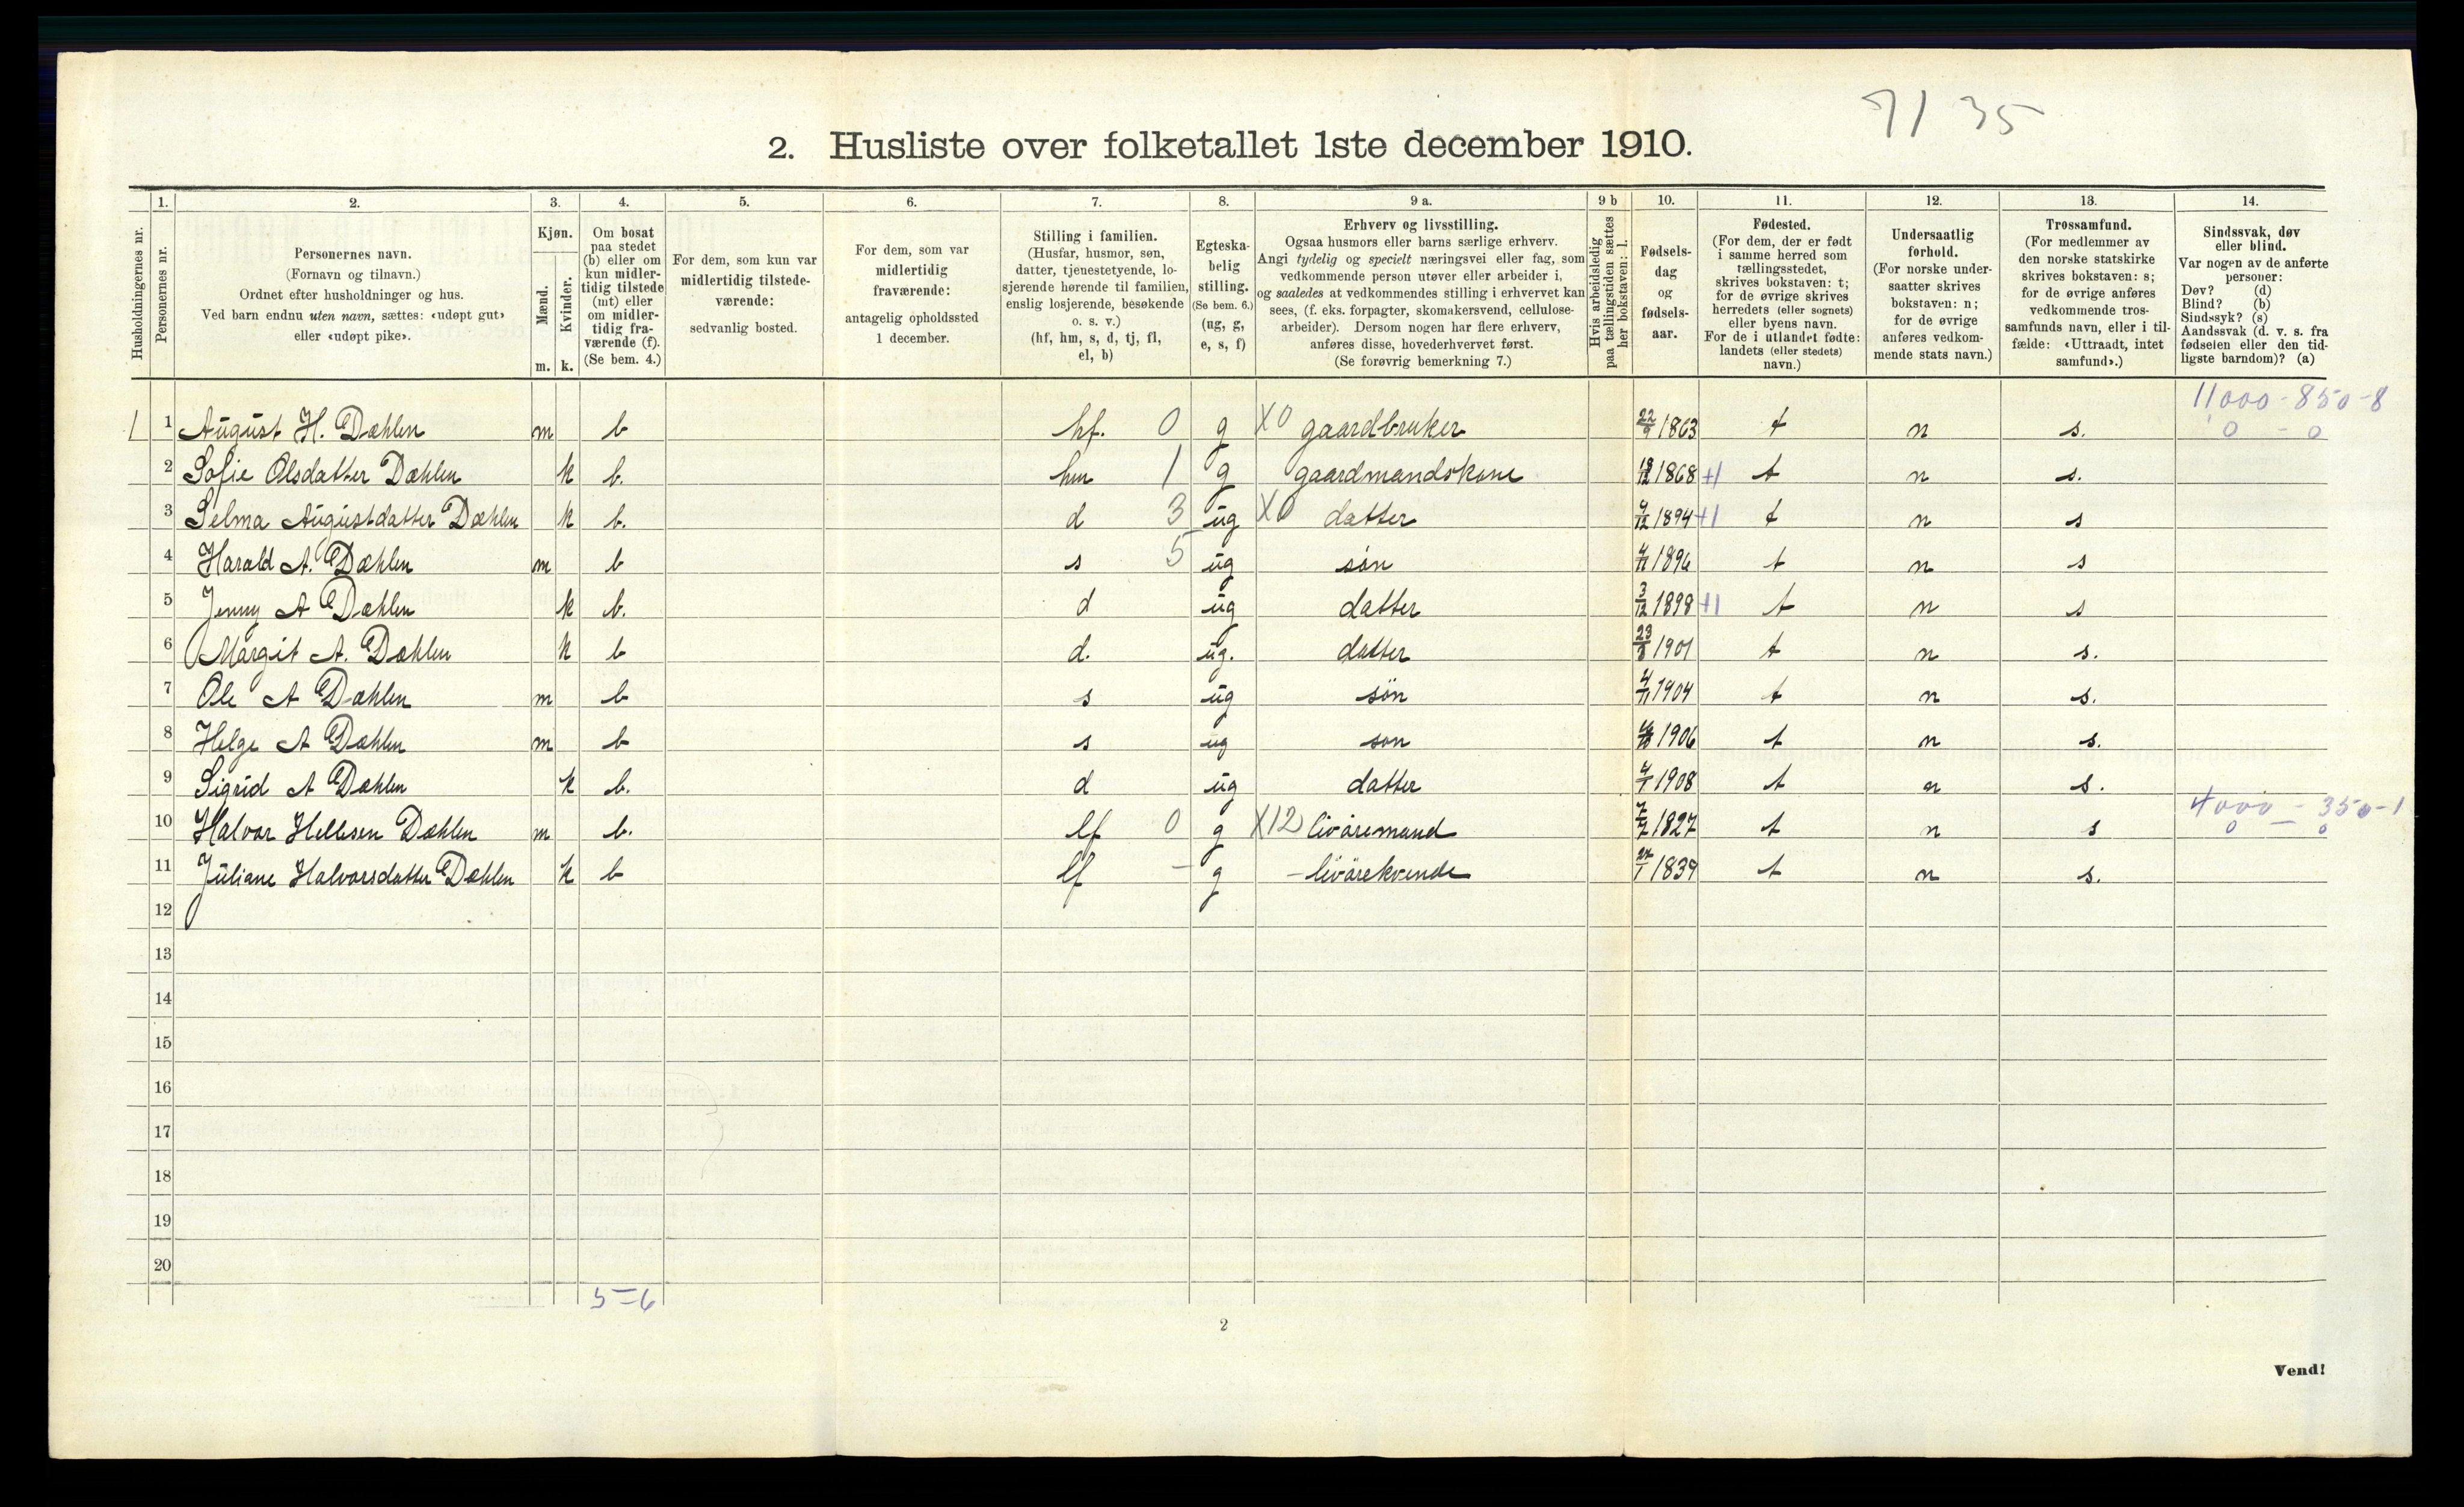 7135
2. Husliste over folketallet 1ste december 1910.
Husholdningernes nr.
1. Personernes nr.
2. Personernes navn.
(Fornavn og tilnavn.)
Ordnet efter husholdninger og hus.
Ved barn endnu uten navn, sættes: «udøpt gut»
eller «udøpt pike».
3. Kjøn.
Mænd. m.
Kvinder. k.
4. Om bosat
paa stedet
(b) eller om
kun midler-
tidig tilstede
(mt) eller
om midler-
tidig fra-
værende (f).
(Se bem. 4.)
5. For dem, som kun var
midlertidig tilstede-
værende:
sedvanlig bosted.
6. For dem, som var
midlertidig
fraværende:
antagelig opholdssted
1 december.
7. Stilling i familien.
(Husfar, husmor, søn,
datter, tjenestetyende, lo-
sjerende hørende til familien,
enslig losjerende, besøkende
o. s. v.)
(hf, hm, s, d, tj, fl,
el, b)
8. Egteska-
belig
stilling.
(Se bem. 6.)
(ug, g,
e, s, f)
9 a. Erhverv og livsstilling.
Ogsaa husmors eller barns særlige erhverv.
Angi tydelig og specielt næringsvei eller fag, som
vedkommende person utøver eller arbeider i,
og saaledes at vedkommendes stilling i erhvervet kan
sees, (f. eks. forpagter, skomakersvend, cellulose-
arbeider). Dersom nogen har flere erhverv,
anføres disse, hovederhvervet først.
(Se forøvrig bemerkning 7.)
9 b Hvis arbeidsledig
paa tællingstiden sættes
her bokstaven: l.
10. Fødsels-
dag
og
fødsels-
aar.
11. Fødested.
(For dem, der er født
i samme herred som
tællingsstedet,
skrives bokstaven: t;
for de øvrige skrives
herredets (eller sognets)
eller byens navn.
For de i utlandet fødte:
landets (eller stedets)
navn.)
12. Undersaatlig
forhold.
(For norske under-
saatter skrives
bokstaven: n;
for de øvrige
anføres vedkom-
mende stats navn.)
13. Trossamfund.
(For medlemmer av
den norske statskirke
skrives bokstaven: s;
for de øvrige anføres
vedkommende tros-
samfunds navn, eller i til-
fælde: «Uttraadt, intet
samfund».)
14. Sindssvak, døv
eller blind.
Var nogen av de anførte
personer:
Døv? (d)
Blind? (b)
Sindssyk? (s)
Aandssvak (d. v. s. fra
fødselen eller den tid-
ligste barndom)? (a)
11000-850-8
1 1 August H. Dæhlen m b hf. 0 g X0 gaardbruker 22/9 1863 t n s. 0 - 0
2 Sofie Olsdatter Dæhlen k b. hm 1 g gaardmandskone 1868 +1 t n s.
3 Selma Augustdatter Dæhlen k b. d 3 ug X0 datter 1894 +1 t n s
4 Harald A. Dæhlen m b s 5 ug søn 1896 t n s
5 Jenny A Dæhlen k b. d ug datter 3/12 1898 +1 t n s
6 Margit A. Dæhlen k b d. ug. datter 23/8 1901 t n s.
7 Ole A Dæhlen m b s ug søn 4/11 1904 t n s.
8 Helge A Dæhlen m b s ug søn 1906 t n s.
9 Sigrid A Dæhlen k b. d ug datter 4/1 1908 t n s.
4000 - 350-1
10 Halvor Hellesen Dæhlen m b. lf 0 g X12 livøremand 7/7 1827 t n s 0 - 0
11 Juliane Halvorsdatter Dæhlen k b lf - g - livørekvende 1839 t n s.
12
13
14
15
16
17
18
19
20
5-6
2
Vend!